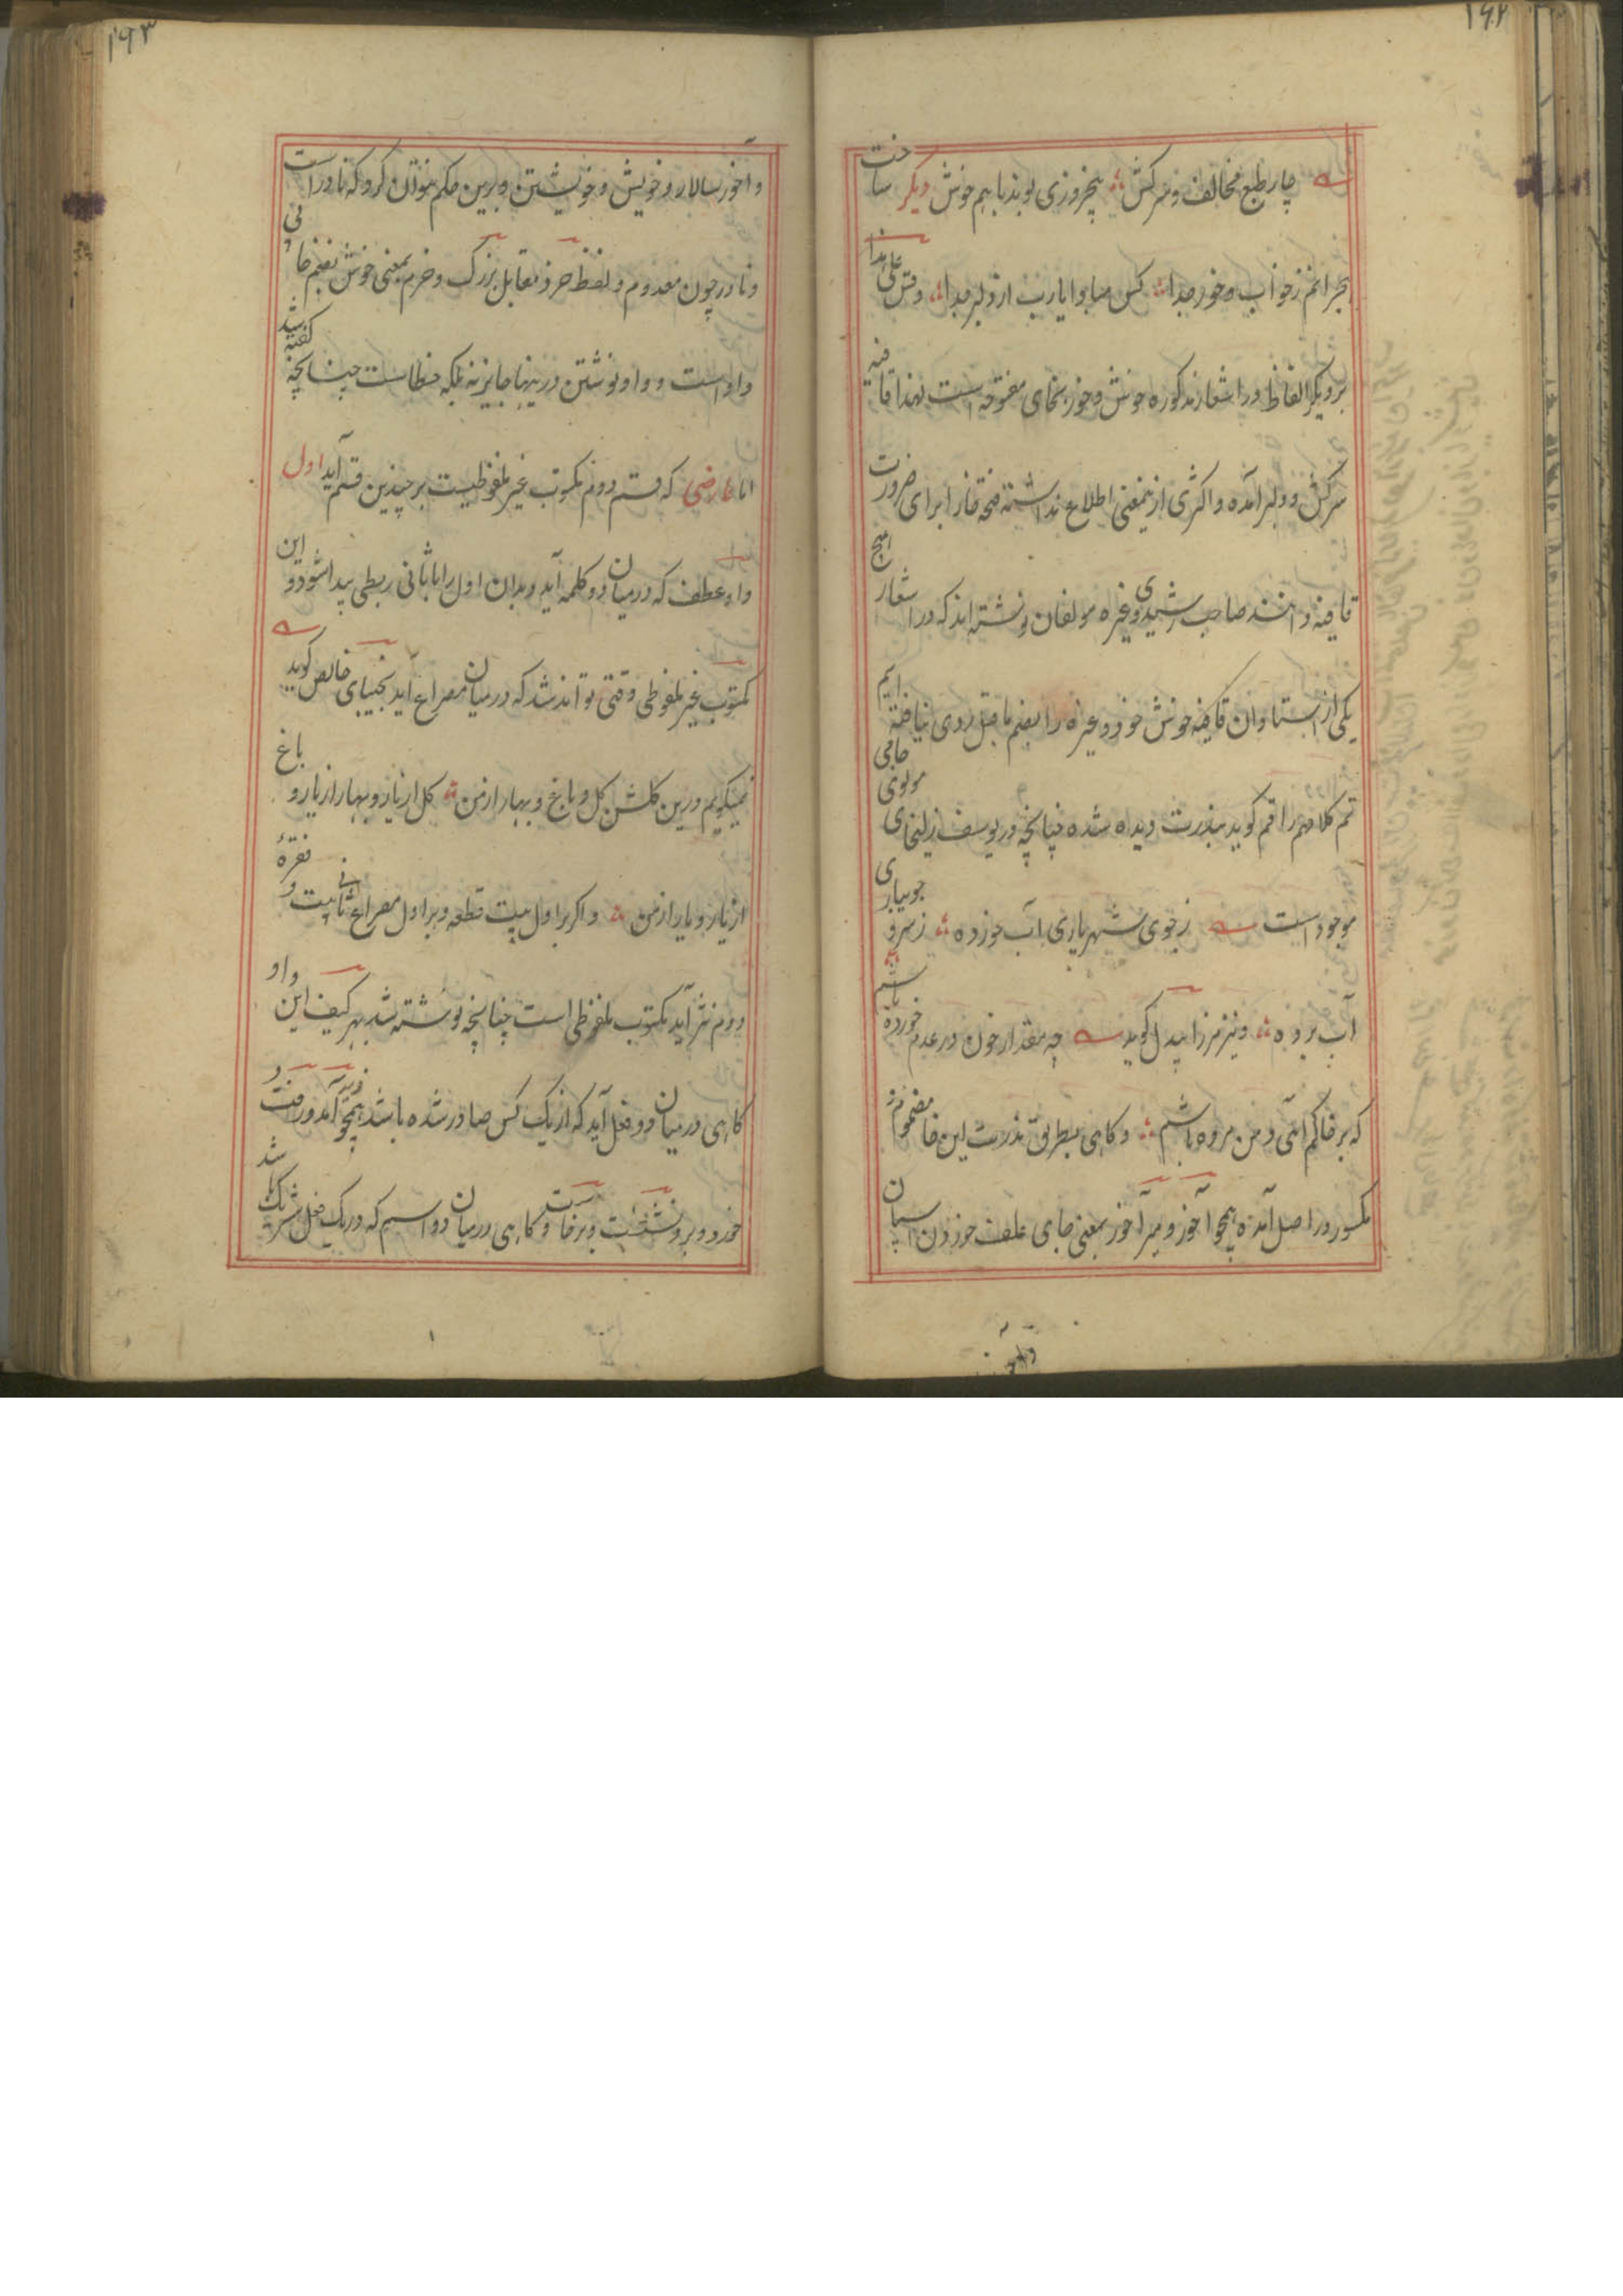 ۱۶۲
چار طبع مخالف و سرکش پنجروزی بوند باهم خوش دیگر ساخت
بحرانم ز خواب و خور جدا کس مبادا یارب از دلبر جدا وقس علی هذا
بر دیگر الفاظ در اشعار مذکوره خوش و خور بخای مفتوحه است لهذا قافیه
سرکش و دلبر آمده و اکثری ازینمعنی اطلاع نداشته فتحه خا را برای ضرورت
قافیه دانند صاحب رشیدی وغیره مولفان نوشته اند که در اشعار هیچ
یکی از استادان قافیه خوش خور وغیره را بضم ماقبل روی نیافته ایم
تم کلامهم راقم گوید بندرت دیده شده چنانچه در یوسف زلیخای مولوی جامی
موجود است ز جوی شهریاری آب خورده ز سرو جویباری
آب برده و نیز مرزا بیدل گوید چه مقدار خون در عدم خورده باشم
که بر خاکم آئی و من مرده باشم و گاهی بطریق ندرت این خا مضموم
مکسور در اصل آمده همچو آخور و میرآخور بمعنی جای علف خوردن اسپان
۱۶۳
و آخور سالار و خویش و خویشتن و برین حکم نتوان کرد که نادر است
و نادر چون معدوم و لفظ خرد مقابل بزرگ و خرم بمعنی خوش بضم خا بی
واو است و واو نوشتن درینها جایز نه بلکه خطاست چنانچه گفته شد
اما عارضی که قسم دوم مکتوب غیر ملفوظیست بر چندین قسم آید اول
واو عطف که درمیان دو کلمه آید و بدان اول را با ثانی ربطی پیدا شود و این
مکتوب غیر ملفوظی وقتی تواند شد که درمیان مصراع آید نجیبای خالص گوید
نمیگویم درین گلشن گل و باغ و بهار از من گل از یار و بهار از یار و باغ
از یار و یار از من و اگر بر اول بیت قطعه و بر اول مصراع ثانی بیت و فقرهٔ
دوم نثر آید مکتوب ملفوظی است چنانچه نوشته شد بهر کیف این واو
گاهی درمیان دو فعل آید که از یک کس صادر شده باشد همچو آمد و رفت و
خورد و برد و نشست و برخاست و گاهی درمیان دو اسم که در یک فعل شریک باشد